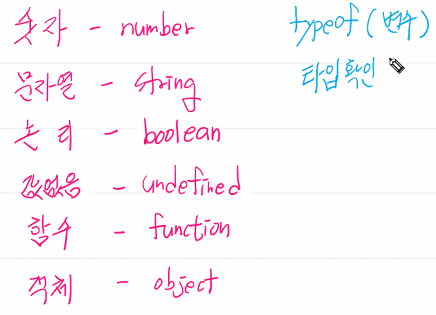 숫자 - number
문자열 - string
논리 - boolean
값없음 - undefined
함수 - function
객체 - object
typeof (변수)
타입확인